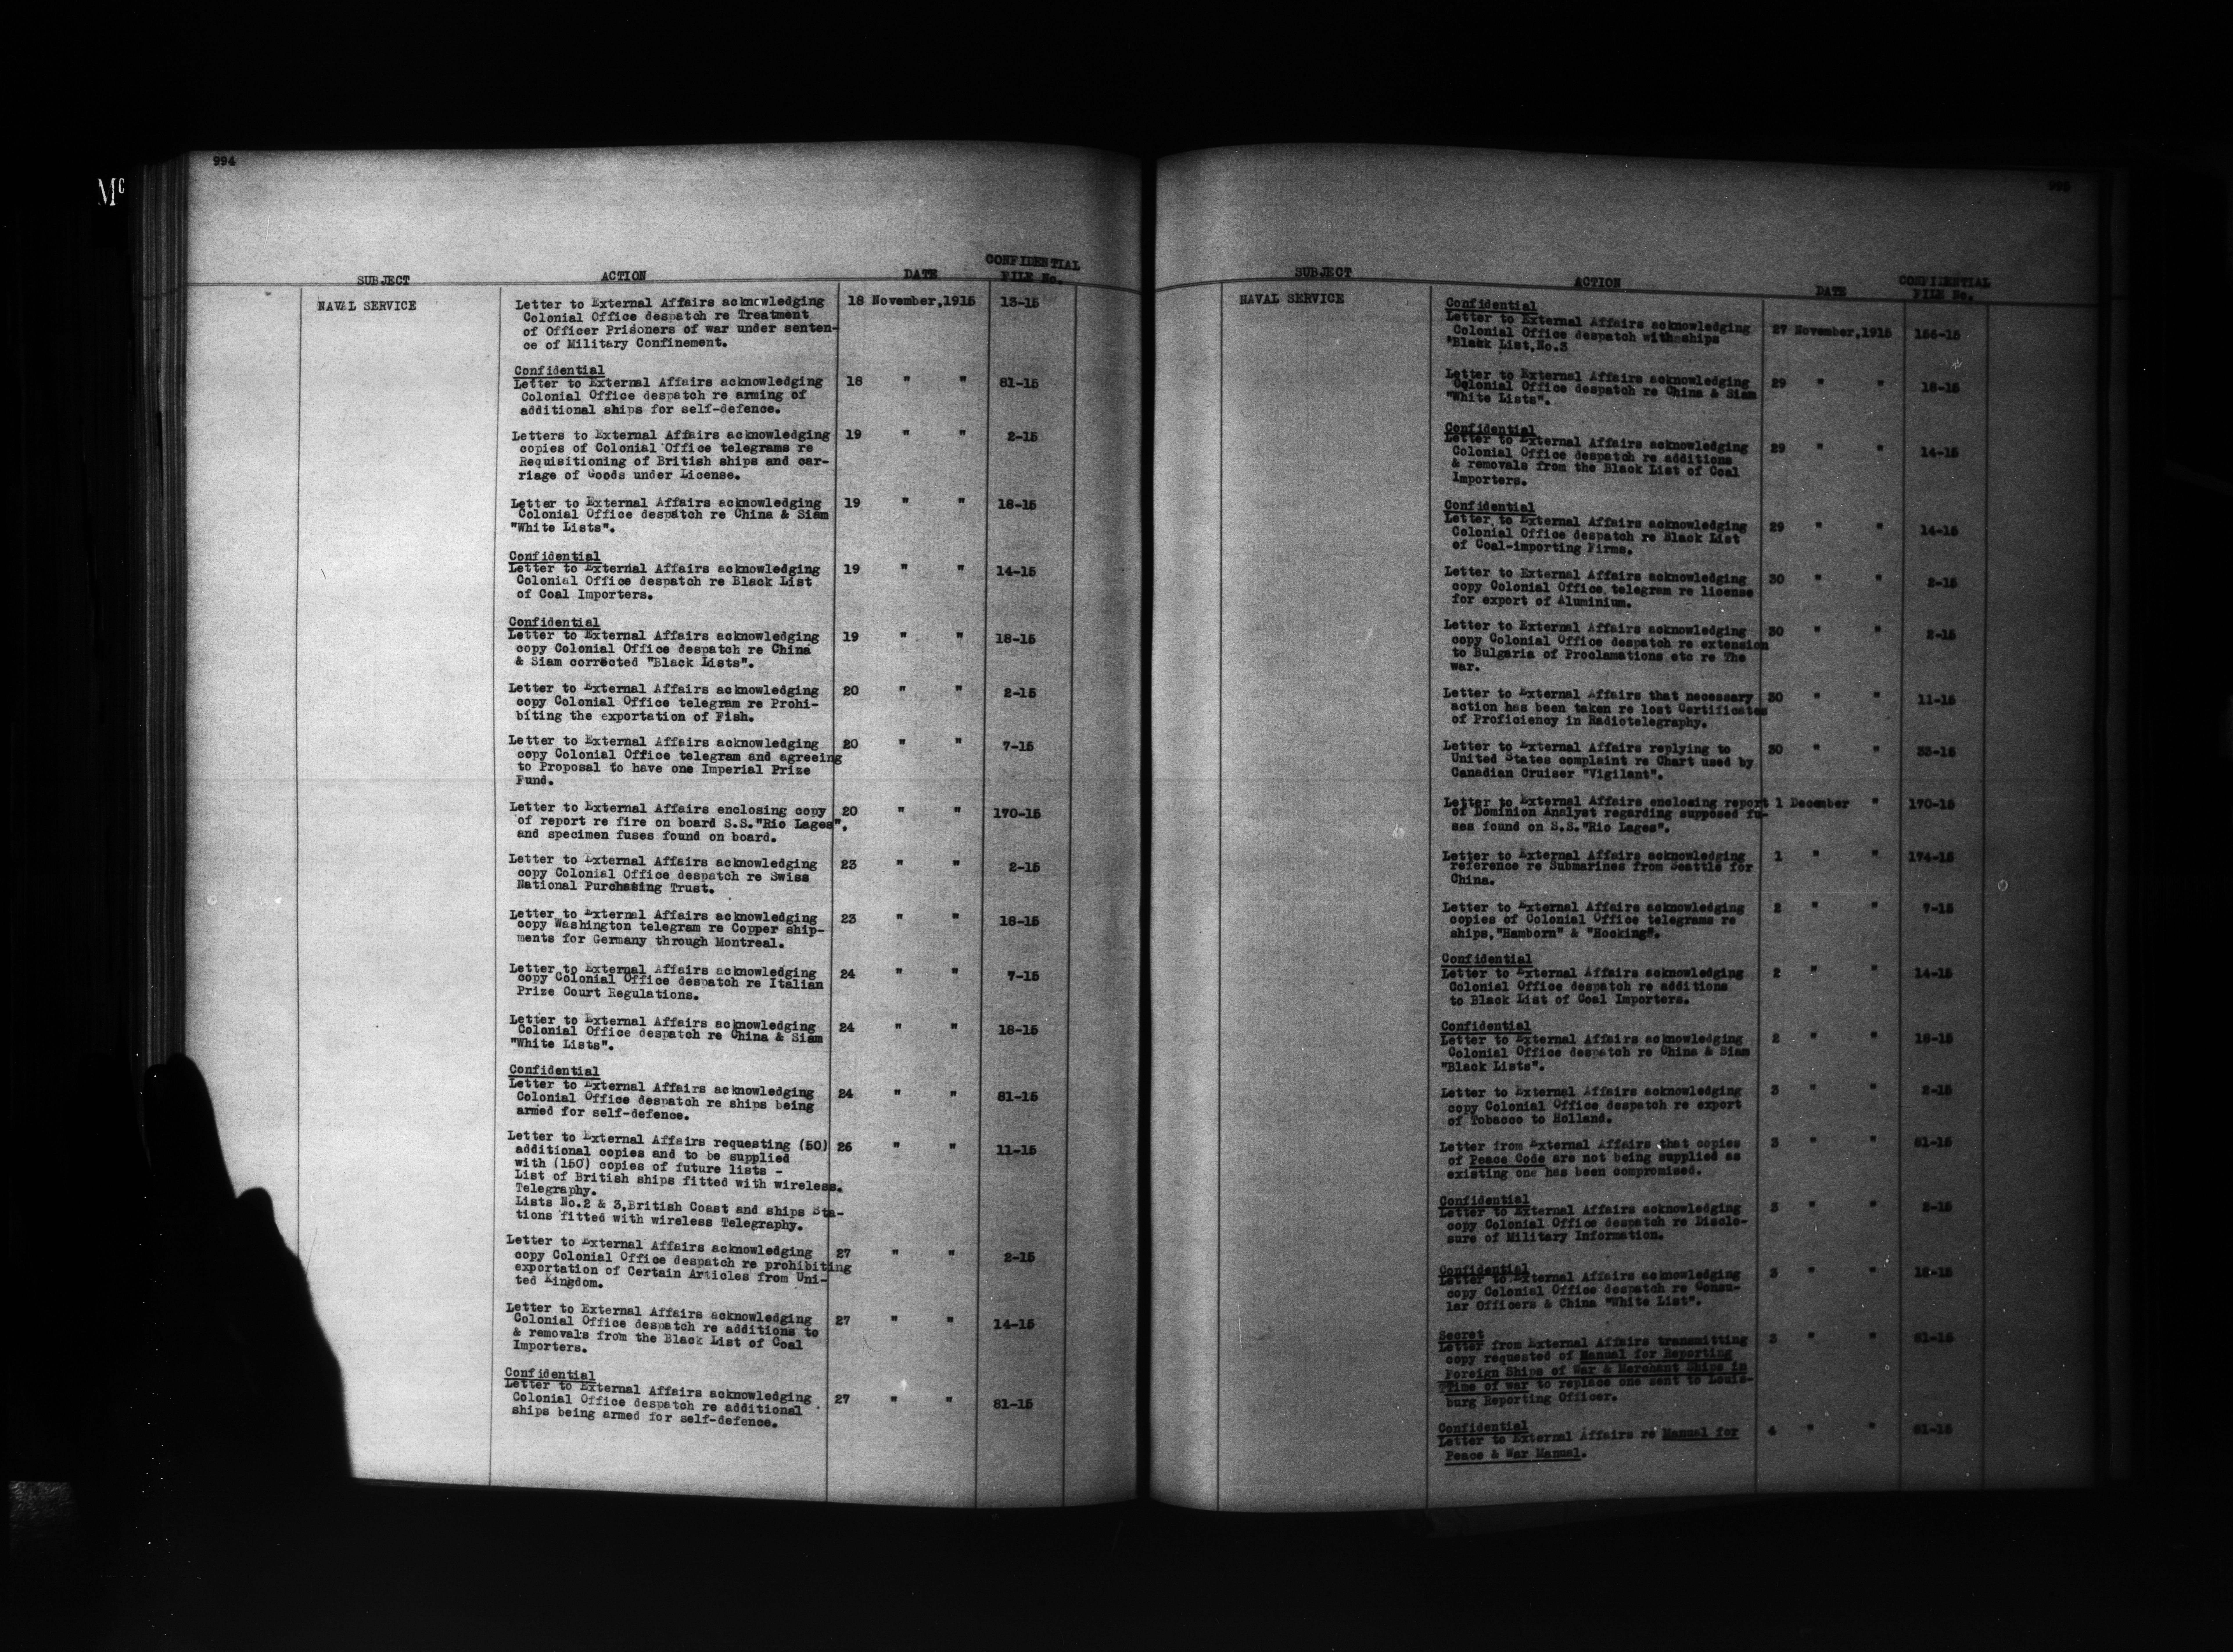 994
Mc
SUBJECT ACTION DATE CONFIDENTIAL FILE No.
NAVAL SERVICE
Letter to External Affairs acknowledging 18 November,1915 13-15
Colonial Office despatch re Treatment
of Officer Prisoners of war under senten-
ce of Military Confinement.
Confidential
Letter to External Affairs acknowledging 18 " " 81-15
Colonial Office despatch re arming of
additional ships for self-defence.
Letters to External Affairs acknowledging 19 " " 2-15
copies of Colonial Office telegrams re
Requisitioning of British ships and car-
riage of Goods under License.
Letter to External Affairs acknowledging 19 " " 18-15
Colonial Office despatch re China & Siam
"White Lists".
Confidential
Letter to External Affairs acknowledging 19 " " 14-15
Colonial Office despatch re Black List
of Coal Importers.
Confidential
Letter to External Affairs acknowledging 19 " " 18-15
copy Colonial Office despatch re China
& Siam corrected "Black Lists".
Letter to External Affairs acknowledging 20 " " 2-15
copy Colonial Office telegram re Prohi-
biting the exportation of Fish.
Letter to External Affairs acknowledging 20 " " 7-15
copy Colonial Office telegram and agreeing
to Proposal to have one Imperial Prize
Fund.
Letter to External Affairs enclosing copy 20 " " 170-15
of report re fire on board S.S."Rio Lages",
and specimen fuses found on board.
Letter to External Affairs acknowledging 23 " " 2-15
copy Colonial Office despatch re Swiss
National Purchasing Trust.
Letter to External Affairs acknowledging 23 " " 18-15
copy Washington telegram re Copper ship-
ments for Germany through Montreal.
Letter to External Affairs acknowledging 24 " " 7-15
copy Colonial Office despatch re Italian
Prize Court Regulations.
Letter to External Affairs acknowledging 24 " " 18-15
Colonial Office despatch re China & Siam
"White Lists".
Confidential
Letter to External Affairs acknowledging 24 " " 81-15
Colonial Office despatch re ships being
armed for self-defence.
Letter to External Affairs requesting (50) 26 " " 11-15
additional copies and to be supplied
with (150) copies of future lists -
List of British ships fitted with wireless.
Telegraphy.
Lists No.2 & 3,British Coast and ships Sta-
tions fitted with wireless Telegraphy.
Letter to External Affairs acknowledging 27 " " 2-15
copy Colonial Office despatch re prohibiting
exportation of Certain Articles from Uni-
ted Kingdom.
Letter to External Affairs acknowledging 27 " " 14-15
Colonial Office despatch re additions to
& removals from the Black List of Coal
Importers.
Confidential
Letter to External Affairs acknowledging 27 " " 81-15
Colonial Office despatch re additional
ships being armed for self-defence.
995
SUBJECT ACTION DATE CONFIDENTIAL FILE No.
NAVAL SERVICE
Confidential
Letter to External Affairs acknowledging 27 November,1915 156-15
Colonial Office despatch with ships
"Black List,No.3
Letter to External Affairs acknowledging 29 " " 18-15
Colonial Office despatch re China & Siam
"White Lists".
Confidential
Letter to External Affairs acknowledging 29 " " 14-15
Colonial Office despatch re additions
& removals from the Black List of Coal
Importers.
Confidential
Letter to External Affairs acknowledging 29 " " 14-15
Colonial Office despatch re Black List
of Coal-importing Firms.
Letter to External Affairs acknowledging 30 " " 2-15
copy Colonial Office telegram re license
for export of Aluminium.
Letter to External Affairs acknowledging 30 " " 2-15
copy Colonial Office despatch re extension
to Bulgaria of Proclamations etc re The
war.
Letter to External Affairs that necessary 30 " " 11-15
action has been taken re lost Certificates
of Proficiency in Radiotelegraphy.
Letter to External Affairs replying to 30 " " 33-15
United States complaint re Chart used by
Canadian Cruiser "Vigilant".
Letter to External Affairs enclosing report 1 December " 170-15
of Dominion Analyst regarding supposed fu-
ses found on S.S."Rio Lages".
Letter to External Affairs acknowledging 1 " " 174-15
reference re Submarines from Seattle for
China.
Letter to External Affairs acknowledging 2 " " 7-15
copies of Colonial Office telegrams re
ships,"Hamborn" & "Hocking".
Confidential
Letter to External Affairs acknowledging 2 " " 14-15
Colonial Office despatch re additions
to Black List of Coal Importers.
Confidential
Letter to External Affairs acknowledging 2 " " 18-15
Colonial Office despatch re China & Siam
"Black Lists".
Letter to External Affairs acknowledging 3 " " 2-15
copy Colonial Office despatch re export
of Tobacco to Holland.
Letter from External Affairs that copies 3 " " 81-15
of Peace Code are not being supplied as
existing one has been compromised.
Confidential
Letter to External Affairs acknowledging 3 " " 2-15
copy Colonial Office despatch re Disclo-
sure of Military Information.
Confidential
Letter to External Affairs acknowledging 3 " " 18-15
copy Colonial Office despatch re Consu-
lar Officers & China "White List".
Secret
Letter from External Affairs transmitting 3 " " 81-15
copy requested of Manual for Reporting
Foreign Ships of War & Merchant Ships in
Time of war to replace one sent to Louis-
burg Reporting Officer.
Confidential
Letter to External Affairs re Manual for 4 " " 81-15
Peace & War Manual.